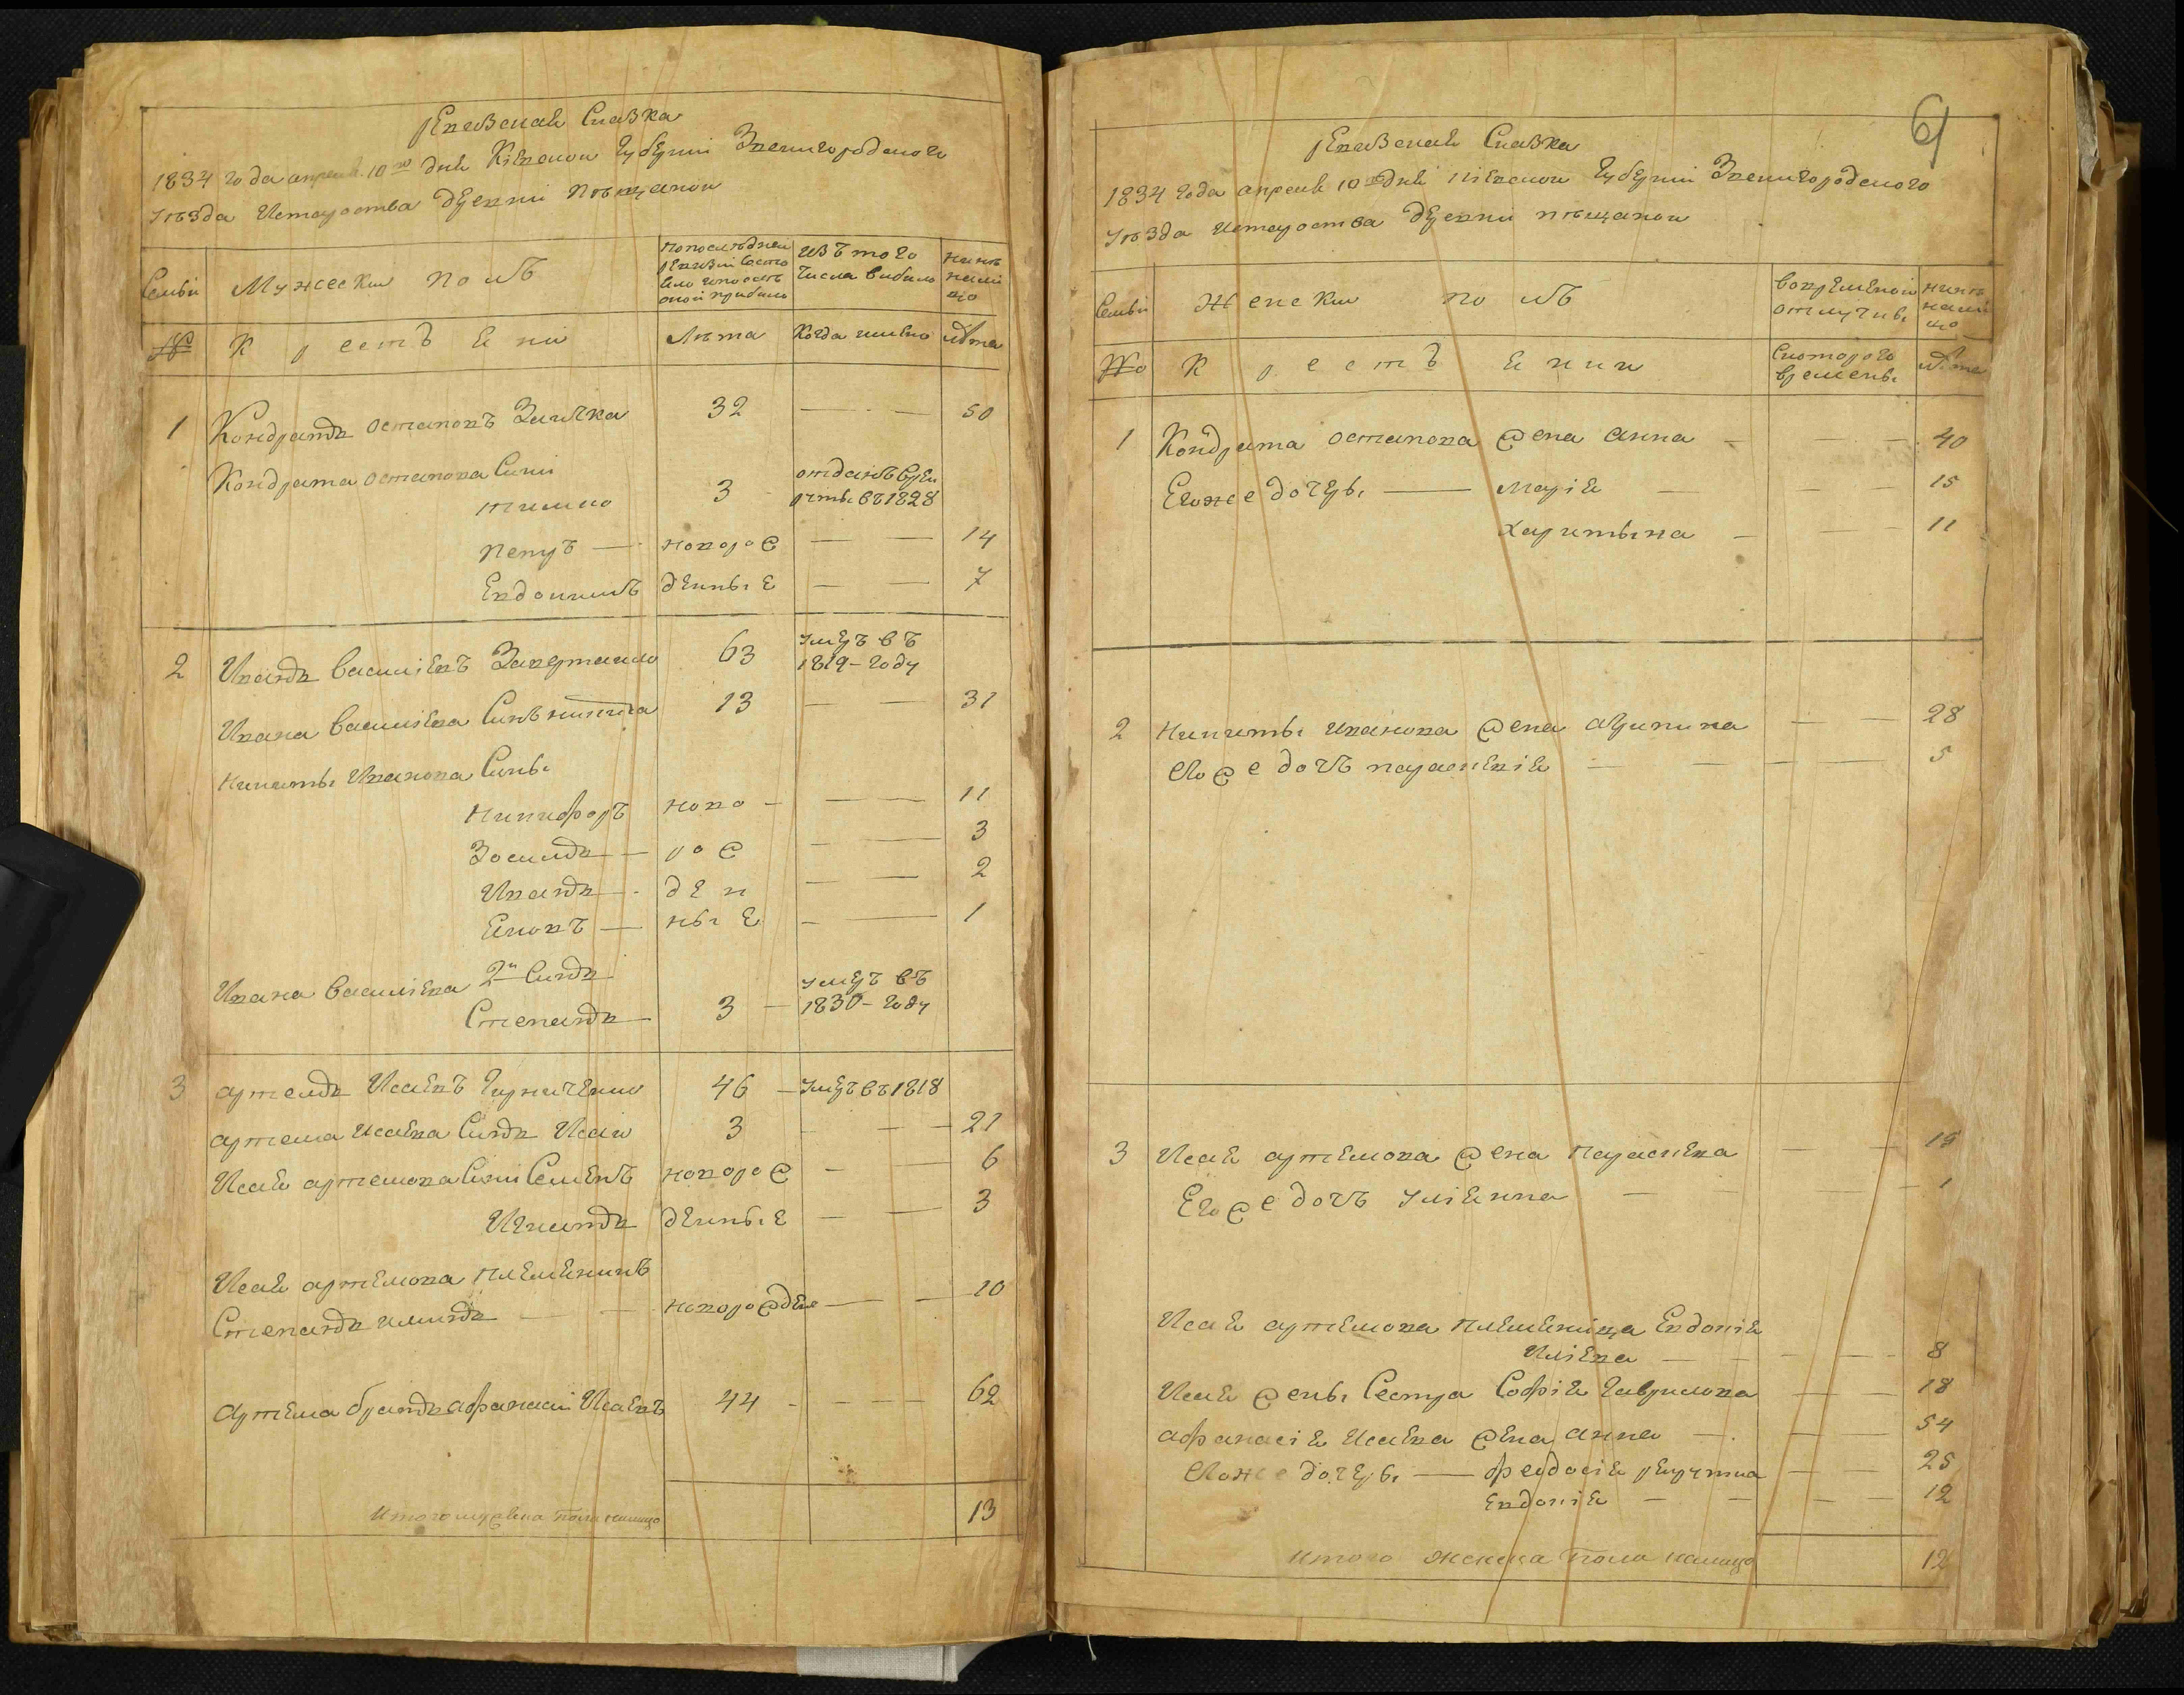 Ревизская Сказка
1834 года апреля 10го дня Кіевской Губерніи Звенигородского
уѣзда Истароства деревни Пѣщаной
Семьи
Мужеский полъ
По последней
ревизіи состо
яло и после
оной прибыло
Изъ того
числа выбыло
Нынѣ
нали
цо
№
Крестьяни
Лѣта
Когда имено
лѣта
1
Кондратъ Остаповъ Заичка
32
50
Кондрата Остапова Сини
Тимко
3
отданъ в рек
руты въ 1828
Петръ
новорож
14
Евдокимъ
денные
7
2
Иванъ Василіевъ
63
умеръ въ
1819 году
Ивана Василіева Синъ Никита
13
31
Никиты Иванова Сины
Никифоръ
ново
11
Зосимъ
рож
3
Иванъ
ден
2
Яковъ
ные
1
Ивана Василіева 2й Синъ
Степанъ
3
умеръ въ
1830 году
3
Артемъ Исаевъ
46
умеръ въ 1818
Артема Исаева Синъ Исай
3
21
Исая Артемова Сини Семенъ
новорож
6
Игнатъ
денные
3
Исая Артемова племенникъ
Степанъ Илиинъ
новорожден
10
Артема братъ Афанасий Исаевъ
44
62
Итого мужеска пола налицо
13
61
Ревизская Сказка
1834 года апреля 10го дня Кіевской Губерніи Звенигородского
уѣзда Истароства деревни Пѣщаной
Семьи
Женский полъ
Во временной
отлучкѣ
Нынѣ
нали
цо
№
Крестьянки
С которого
времены
лѣта
1
Кондрата Остапова жена Анна
40
Егоже дочеры Марія
15
Харитына
11
2
Никиты Иванова жена Агрипина
28
Егоже дочъ Параскевія
5
3
Исая Артемова жена Параскева
19
Егоже дочъ Уліянна
1
Исая Артемова племеница Евдокія
Иліева
8
Исая жены Сестра Софія Гаврилова
18
Афанасія Исаева жена Анна
54
Егоже дочеры Феодосія рекрутка
25
Евдокія
12
Итого женска пола налицо
12